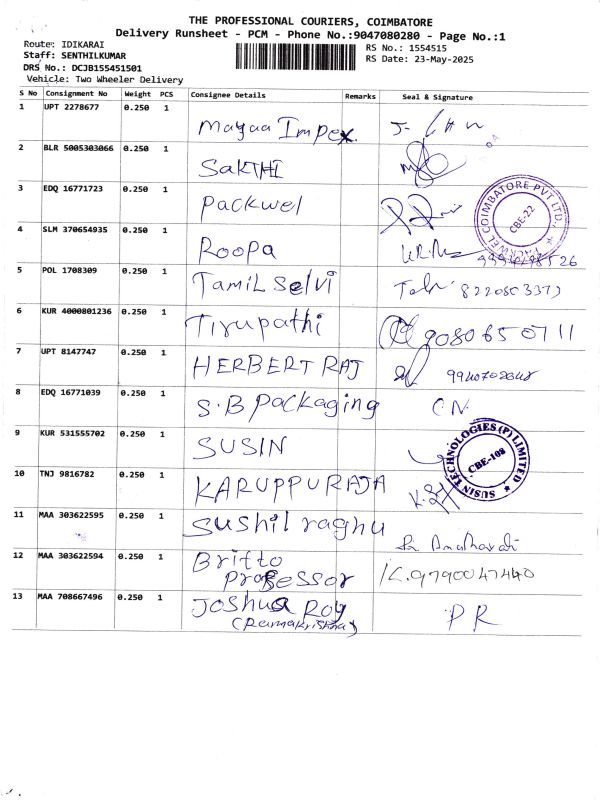 THE PROFESSIONAL COURIERS, COIMBATORE
Delivery Runsheet - PCM - Phone No.:9047080280 - Page No.:1
Route: IDIKARAI
Staff: SENTHILKUMAR
DRS No.: DCJB155451501
Vehicle: Two Wheeler Delivery
RS No.: 1554515
RS Date: 23-May-2025
S No Consignment No Weight PCS Consignee Details Remarks Seal & Signature
1 UPT 2278677 0.250 1 Magaa Impex.
2 BLR 5005303066 0.250 1 SAKTHI
3 EDQ 16771723 0.250 1 Packwel
PACKWEL COIMBATORE PVT LTD.,
CBE-22
4 SLM 370654935 0.250 1 Roopa
5 POL 1708309 0.250 1 Tamil Selvi
6 KUR 4000801236 0.250 1 Tirupathi 9080650711
7 UPT 8147747 0.250 1 HERBERT RAJ
8 EDQ 16771039 0.250 1 S.B Packaging C.N.
9 KUR 531555702 0.250 1 SUSIN
SUSIN TECHNOLOGIES (P) LIMITED
CBE-108
10 TNJ 9816782 0.250 1 KARUPPURAJA
11 MAA 303622595 0.250 1 Sushil raghu
12 MAA 303622594 0.250 1 Britto
Professor K.9790047440
13 MAA 708667496 0.250 1 Joshua Roy PR
(Ramakrishna)